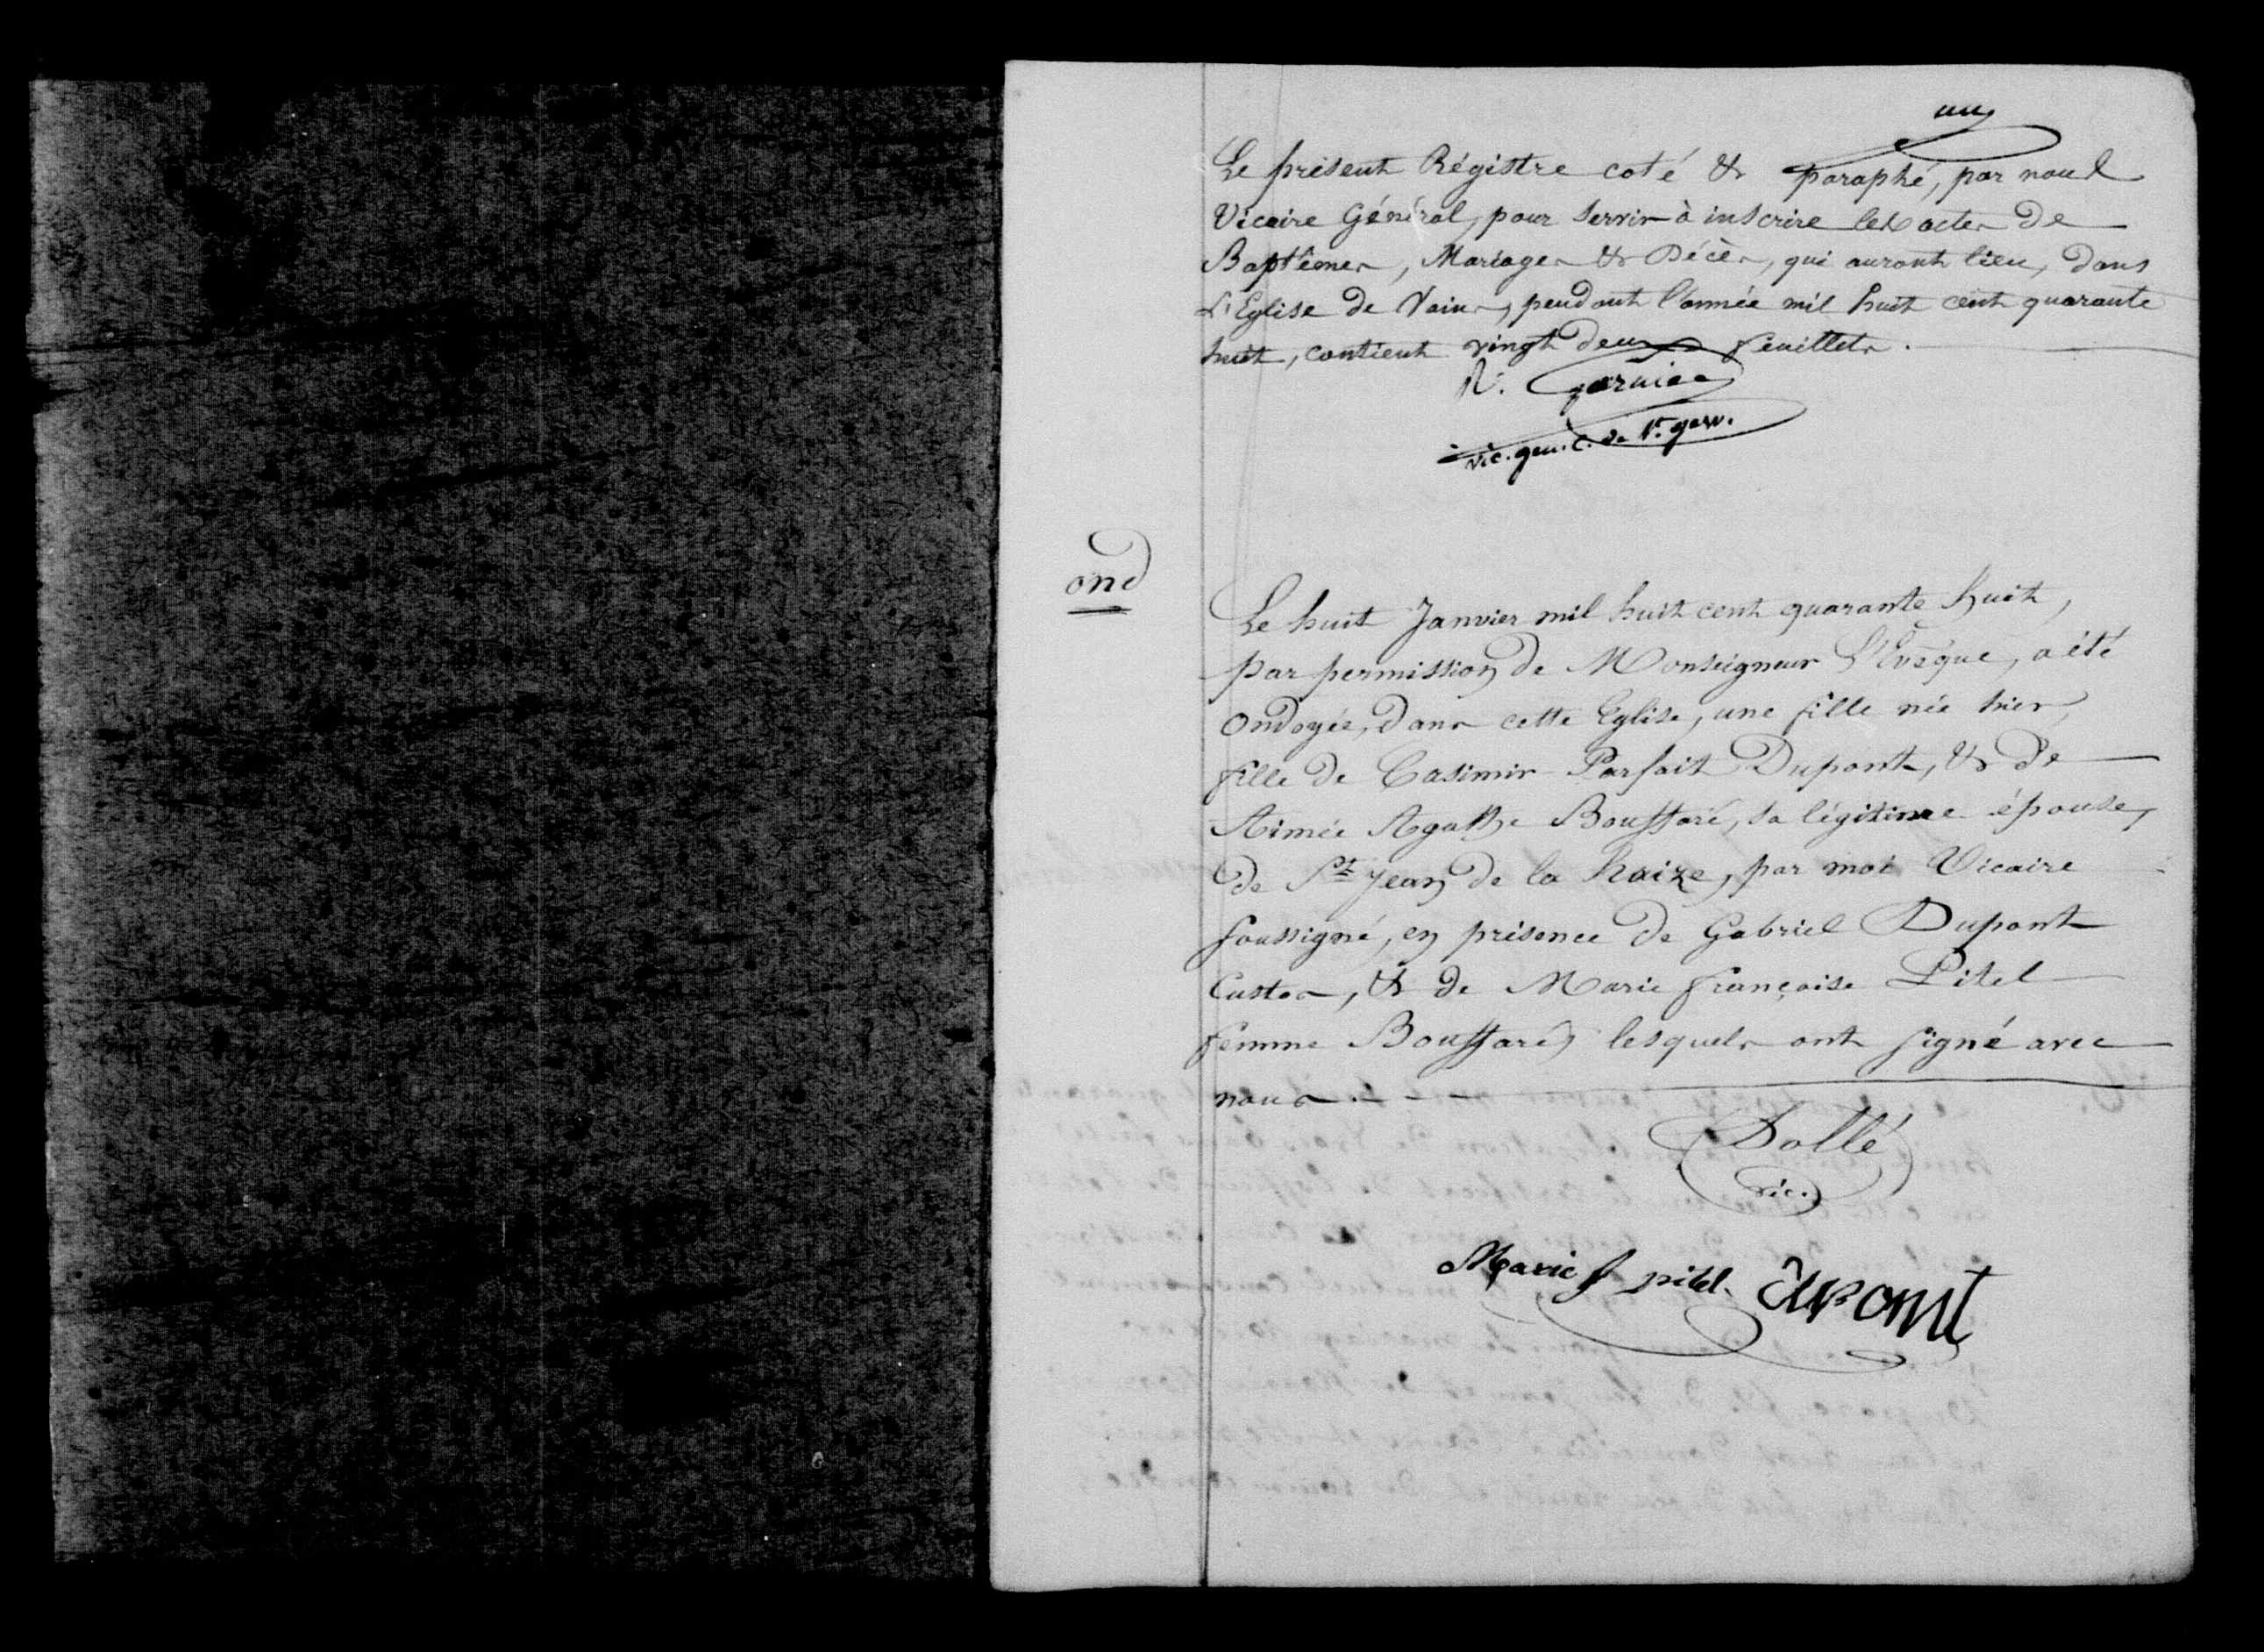 un
Le présent Régistre coté & paraphé, par nous
Vicaire Général, pour servir à inscrire les actes de
Baptêmes, Mariages & Décès, qui auront lieu, dans
L'Eglise de Vains, pendant l'année mil huit cent quarante
huit, contient vingt deux feuillets.
N. garnier
vic. gen. C. de
ond
Le huit Janvier mil huit cent quarante huit,
par permission de Monseigneur L'Evêque, a été
ondoyée, dans cette Eglise, une fille née hier,
fille de Casimir Parfait Dupont, & de
Aimée Agathe Bouffaré, sa légitime épouse,
de St Jean de la haize, par moi Vicaire
soussigné, en présence de Gabriel Dupont
Custos, & de Marie françoise Pitel
femme Bouffaré, lesquels ont signé avec
nous.
Dollé
vic.
Marie f pitel. dupont